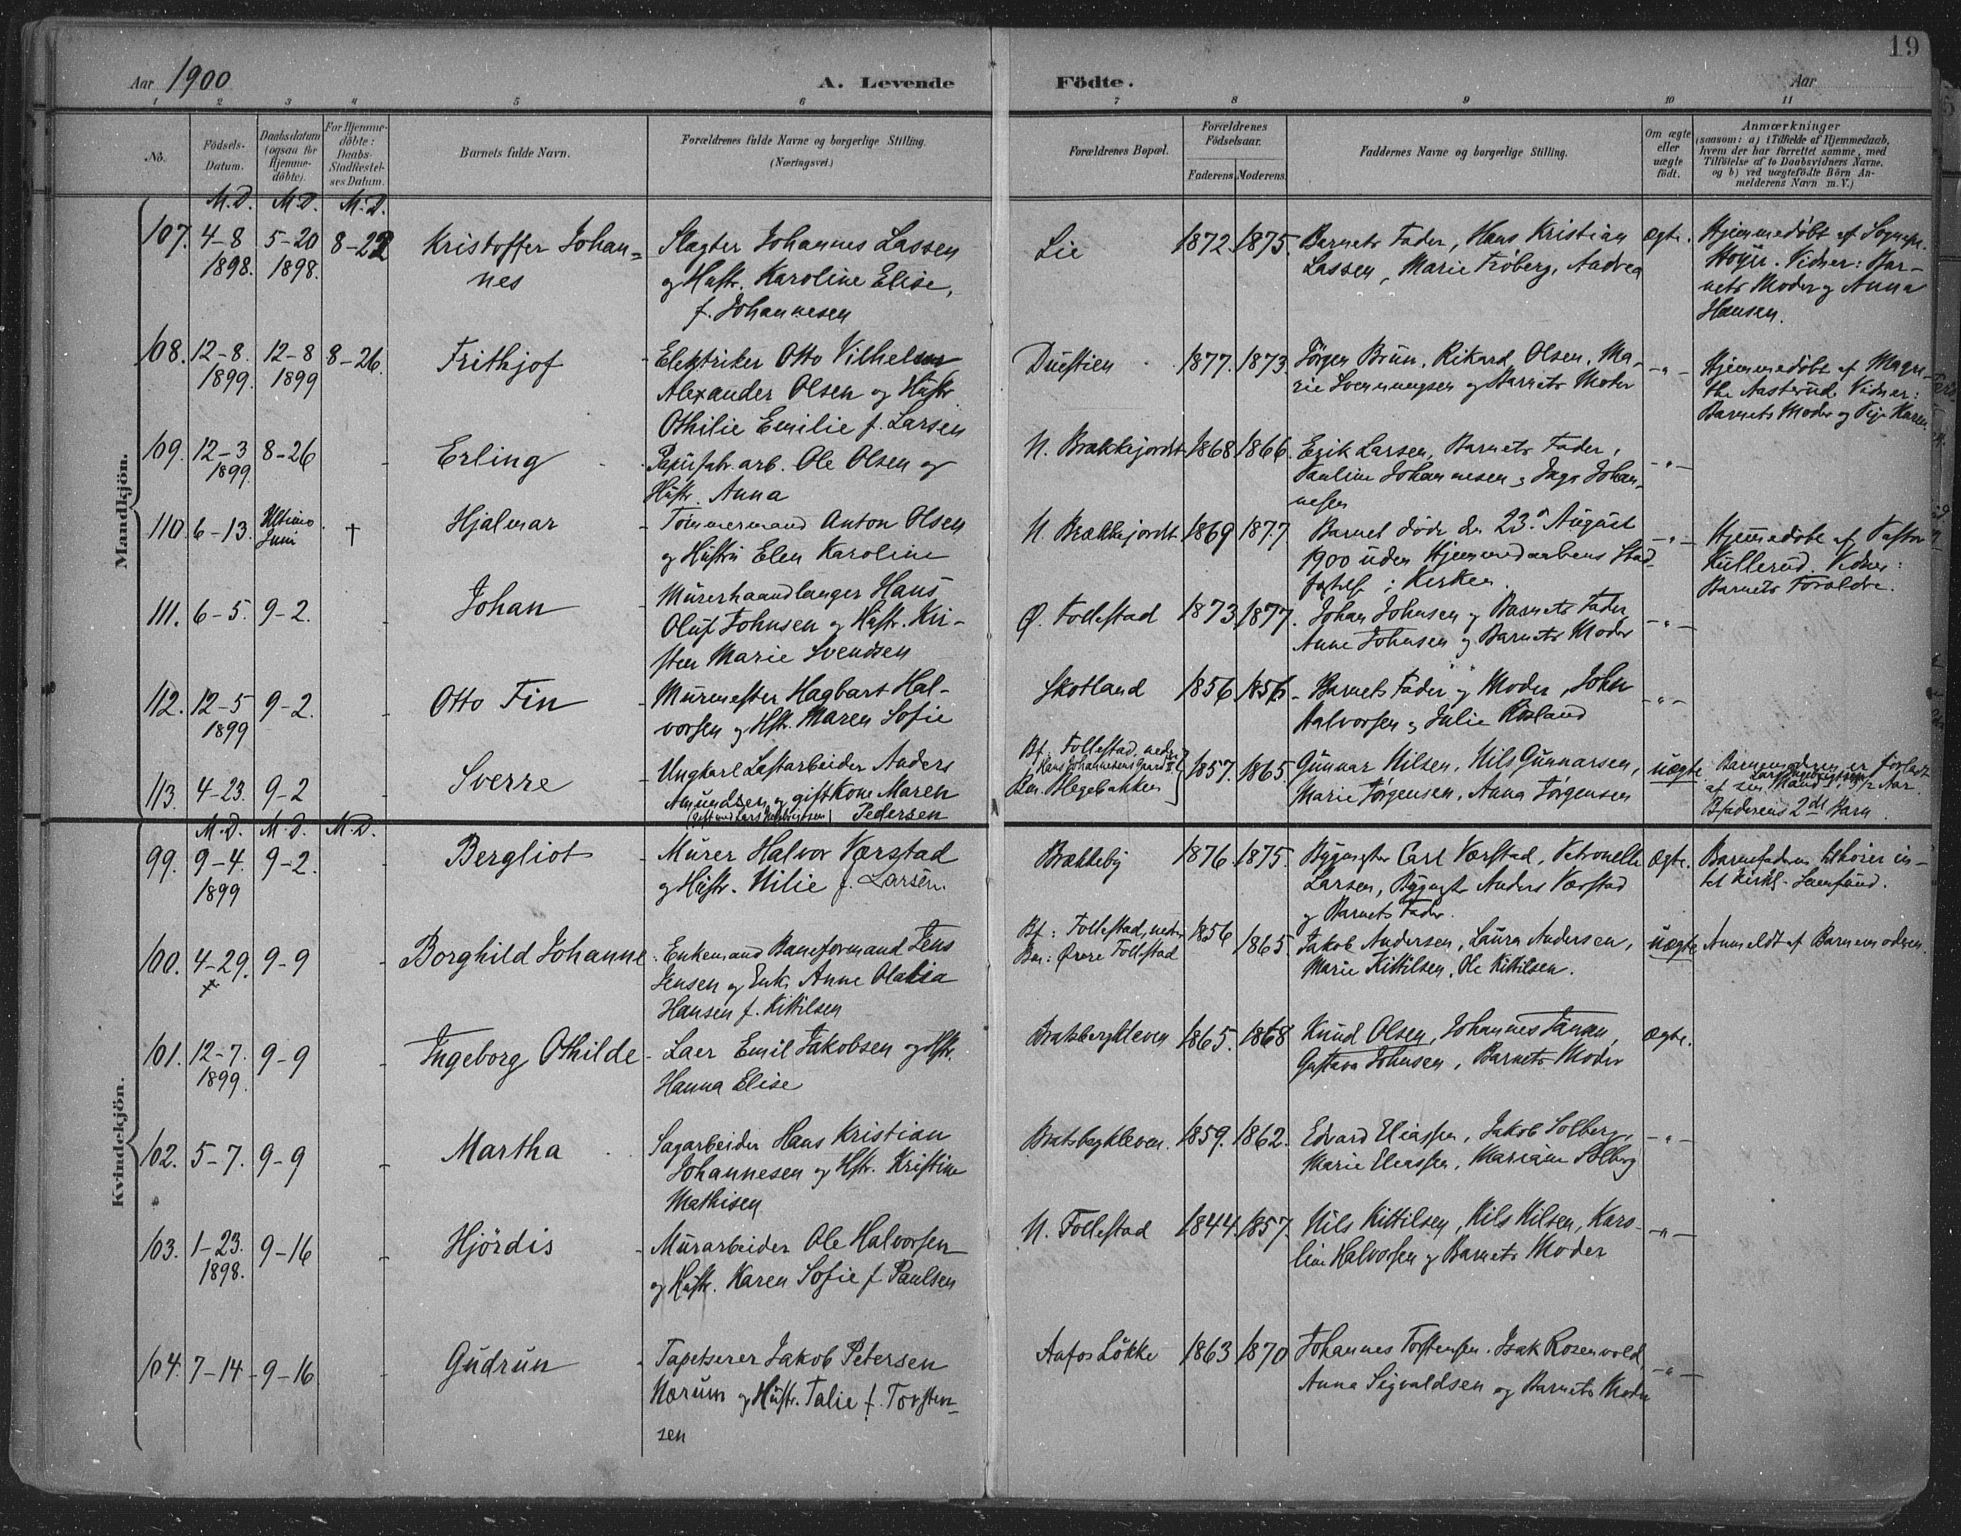 19
Aar 1900
A. Levende Födte.
Aar
1 2 3 4 5 6 7 8 9 10 11
No.
Födsels-
Datum.
Daabsdatum
(ogsaa for
Hjemme-
döbte).
For Hjemme-
döbte:
Daabs-
Stadfæstel-
ses Datum.
Barnets fulde Navn.
Forældrenes fulde Navne og borgerlige Stilling.
(Næringsvei.)
Forældrenes Bopæl.
Forældrenes
Födselsaar.
Faderens. Moderens.
Faddernes Navne og borgerlige Stilling.
Om ægte
eller
uægte
födt.
Anmærkninger
(saasom: a) i Tilfælde af Hjemmedaab,
hvem der har forrettet samme, med
Tilföielse af to Daabsvidners Navne,
og b) ved uægtefödte Börn An-
melderens Navn m. V.)
Mandkjön.
M. D. M. D. M. D.
107. 4-8 1898. 5-20 1898. 8-22
Kristoffer Johan=
nes
Slagter Johannes Lassen
og Hustr. Karoline Elise,
f. Johannesen
Lie
1872. 1875.
Barnets Fader, Hans Kristian
Lassen, Marie Froberg, Andrea
Ægte.
Hjemmedøbt af Sognepr.
Høyer. Vidner: Bar-
nets Moder og Anna
Hansen.
108. 12-8. 1899. 12-8 1899 8-26.
Frithjof
Elektriker Otto Vilhelm
Alexander Olsen og Hustr.
Othilie Emilie f. Larsen
Duestien
1877. 1873.
Jørgen Brun, Rikard Olsen, Ma-
rie Svenningsen og Barnets Moder
-"-
Hjemmedøbt af Magre-
the Aasterud. Vidner:
Barnets Moder og Pige Karen
109. 12-3 1899. 8-26 -
Erling
Papirfabr. arb. Ole Olsen og
Hustr. Anna
N. Brækkejordet
1868 1866.
Erik Larsen, Barnets Fader,
Pauline Johannesen, Inge Johan-
nessen
-"-
110. 6-13. Ultimo Juni †
Hjalmar
Tømmermand Anton Olsen
og Hustru Elen Karoline
N. Brækkejordet
1869 1877
Barnet døde den 23. August
1900 uden Hjemmedaabens Stad-
fæstelse i Kirken.
-"-
Hjemmedøbt af Pastor
Kullerud. Vidner:
Barnets Forældre.
111. 6-5. 9-2. -
Johan
Murerhaandlanger Hans
Oluf Johnsen og Hustr. Kir-
sten Marie Svendsen
Ø. Follestad
1873. 1877.
Johan Johnsen og Barnets Fader,
Anne Johnsen og Barnets Moder
-"-
112. 12-5 1899 9-2. -
Otto Fin
Murmester Hagbart Hal-
vorsen og Hstr. Maren Sofie
Skotland
1856 1856
Barnets Fader og Moder, John
Halvorsen og Julie Røsland
-"-
113. 4-23. 9-2 -
Sverre
Ungkarl Lastarbeider Anders
Amundsen og gift Kone Maren
Pedersen
Bf: Follestad, nedre
Bm. Hegebakken
1857. 1865.
Gunnar Nilsen, Nils Gunnarsen,
Marie Jørgensen, Anna Jørgensen
uægte
Barnemoderen er forladt
af sin Mand i 3½ Aar.
Bfaderens 2det Barn.
Kvindekjön.
M. D. M. D. M. D.
99. 9-4. 1899 9-2.
Bergliot
Murer Halvor Værstad
og Hustr. Nilie f. Larsen.
Brækkeby
1876. 1875.
Bygmester Carl Værstad, Petronelle
Larsen, Bygmstr Anders Værstad
og Barnets Fader.
Ægte.
Barnefaderen tilhører in-
tet kirkl. Samfund.
100. 4-29. 9-9 -
Borghild Johanne
Enkemand Baneformand Jens
Jensen og Enke Anne Olalia
Hansen f. Kittilsen
Bf: Follestad, nedre
Bm: Øvre Follestad
1856 1865
Jakob Andersen, Laura Andersen,
Marie Kittilsen, Ole Kittilsen.
uægte
Anmeldt af Barnemoderen.
101. 12-7. 1899. 9-9 -
Ingeborg Othilde
Laer Emil Jakobsen og Hstr.
Hanna Elise
Bratsbergkleven
1865. 1868
Knud Olsen, Johannes Tanan,
Gustava Johnsen, Barnets Moder
Ægte.
102. 5-7. 9-9 -
Martha
Sagarbeider Hans Kristian
Johannesen og Hstr. Kristine
Mathisen
Bratsbergkleven.
1859. 1862.
Edvard Eliassen, Jakob Solberg,
Marie Eliassen, Mariane Solberg
-"-
103. 1-23. 1898. 9-16 -
Hjördis
Murarbeider Ole Halvorsen
og Hustr. Karen Sofie f. Paulsen
N. Follestad
1844. 1857.
Nils Kittilsen, Nils Nilsen, Karo-
line Halvorsen og Barnets Moder
-"-
104. 7-14. 9-16. -
Gudrun
Tapetserer Jakob Petersen
Nærum og Hustr. Talie f. Torsten-
sen
Aafos Løkke
1863 1870
Johannes Torstensen. Isak Rosenvold,
Anna Sigvaldsen og Barnets Moder
-"-